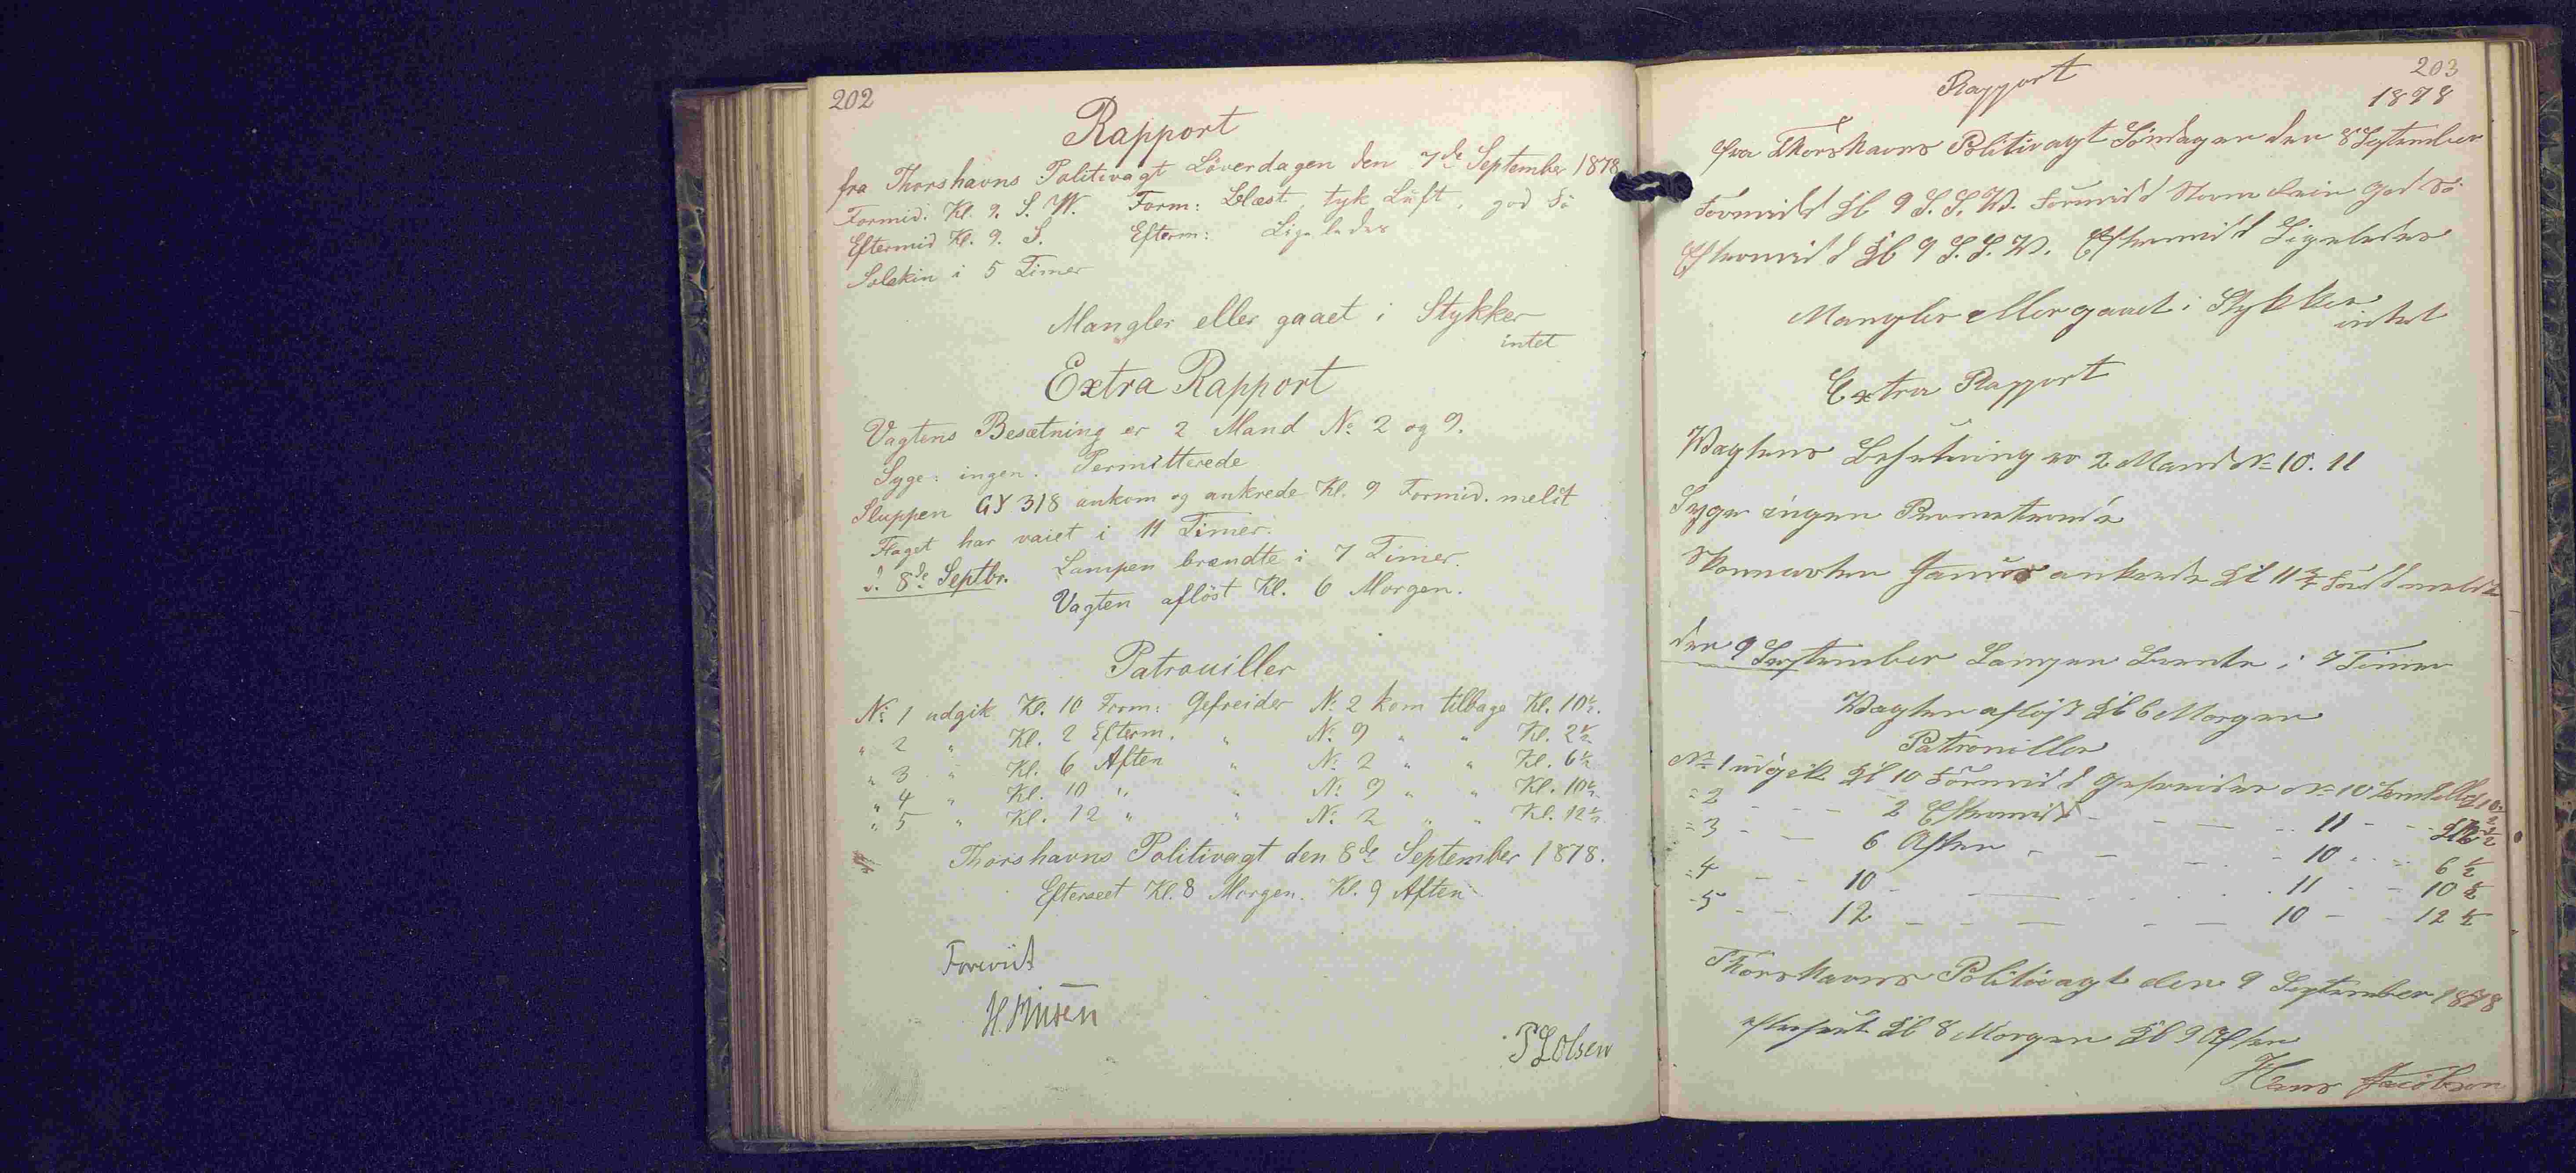 202
Rapport
fra Thorshavns Politivagt Löverdagen den 7de September 1878
Formid. Kl. 9. S. W. Form: Blæst, tyk Luft, god Sö
Eftermid Kl. 9. S. Efterm: Ligeledes
Solskin i 5 Timer
Mangler eller gaaet i Stykker
intet
Extra Rapport
Vagtens Besætning er 2 Mand No. 2 og 9.
Syge: ingen. Permitterede
Sluppen GY 318 ankom og ankrede Kl. 9 Formid. meldt
Flaget har vaiet i 11 Timer.
d. 8de Septbr. Lampen brændte i 7 Timer.
Vagten aflöst Kl. 6 Morgen.
Patrouiller
No. 1 udgik Kl. 10 Form: Gefreider No. 2 kom tilbage Kl. 10½.
" 2 " Kl. 2 Efterm. " No. 9 " " Kl. 2½
" 3 " Kl. 6 Aften " No. 2 " " Kl. 6½
" 4 " Kl. 10 " " No. 9 " " Kl. 10½
" 5 " Kl. 12 " " No. 2 " " Kl. 12½
Thorshavns Politivagt den 8de September 1878.
Efterseet Kl. 8 Morgen. Kl. 9 Aften
Forevist
P Olsen
203
Rapport
1878
fra Thorshavns Politivagt Söndagen den 8 September
Formidd Kl 9 S. S. W. Formidd Storm Rein god Sö
Eftermidd Kl 9 S. S. W. Eftermidd Ligeledes
Mangler eller gaaet i Stykker
intet
Extra Rapport
Wagtens Besetning er 2 Mand No 10. 11
Syge ingen Permeterede
Skonnerten Janus ankrede Kl 11½ Formd meldte
den 9 September Lampen Brente i 7 Timer
Wagten aflöst Kl 6 Morgen
Patrouiller
No 1 udgik Kl 10 Formidd gefreider No 10 kom
= 2 - - - 2 Eftermidd - - - 11 - - 2½
= 3 - - 6 Aften - - - 10 - - 6½
= 4 - - 10 - - - 11 - - 10½
- 5 - - 12 - - - 10 - - 12½
Thorshavns Politivagt den 9 September 1878
efterseet Kl 8 Morgen Kl 9 Aften
Hans Jacobsen